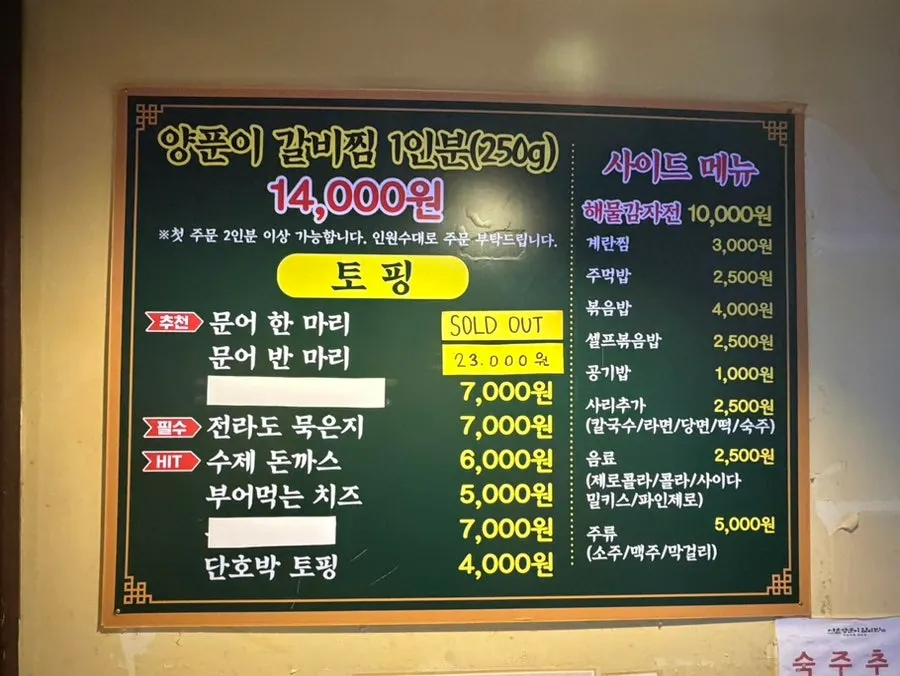 양푼이 갈비찜 1인분(250g)
14,000원
※첫 주문 2인분 이상 가능합니다. 인원수대로 주문 부탁드립니다.
토핑
추천 문어 한 마리 SOLD OUT
문어 반 마리 23.000원
7,000원
필수 전라도 묵은지 7,000원
HIT 수제 돈까스 6,000원
부어먹는 치즈 5,000원
7,000원
단호박 토핑 4,000원
사이드 메뉴
해물감자전 10,000원
계란찜 3,000원
주먹밥 2,500원
볶음밥 4,000원
셀프볶음밥 2,500원
공기밥 1,000원
사리추가 2,500원
(칼국수/라면/당면/떡/숙주)
음료 2,500원
(제로콜라/콜라/사이다
밀키스/파인제로)
주류 5,000원
(소주/맥주/막걸리)
숙주추